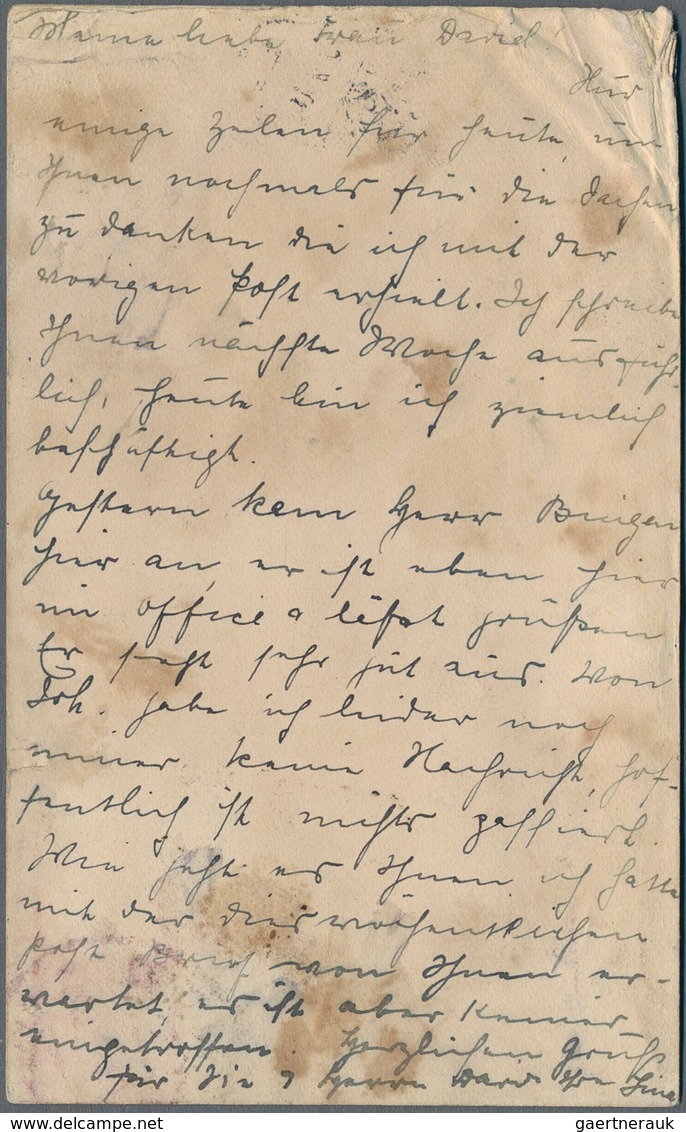 Meine liebe Frau David!
Nur
einige Zeilen für heute, um
Ihnen nochmals für die Sachen
zu danken die ich mit der
vorigen Post erhielt. Ich schreibe
Ihnen nächste Woche ausführ-
lich, heute bin ich ziemlich
beschäftigt.
Gestern kam Herr Bingen
hier an, er ist eben hier
im Office & läßt grüßen
Er sieht sehr gut aus. Von
Joh. habe ich leider noch
immer keine Nachricht, hof-
fentlich ist nichts passiert.
Wie geht es Ihnen, ich hatte
mit der dieswöchentlichen
Post Brief von Ihnen er-
wartet, es ist aber keiner
eingetroffen. Herzlichen Gruß
für Sie & Herrn David Ihre Lina
gaertnerauk